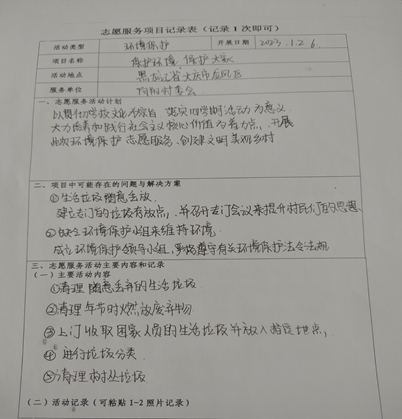 志愿服务项目记录表（记录1次即可）
活动类型 环境保护 开展日期 2023.1.26.
项目名称 保护环境 保护大家
活动地点 黑龙江省大庆市
服务单位 村委会
一、志愿服务活动计划
以贯彻学校文化为宗旨 落实四学期活动为意义
大力培养和践行社会主义核心价值为着力点，开展
此次环境保护志愿服务，创建文明美丽乡村
二、项目中可能存在的问题与解决方案
①生活垃圾随意丢放.
建立专门的垃圾存放点，并召开专门会议来提升村民们的思想.
②缺乏环境保护小组来维持环境.
成立环境保护领导小组，遵守有关环境保护法令法规
三、志愿服务活动主要内容和记录
（一）主要活动内容
①清理随意丢弃的生活垃圾
②清理年节时燃放废弃物
③上门收取困家人员的生活垃圾并放入指定地点，
④进行垃圾分类
⑤清理树丛垃圾
（二）活动记录（可粘贴1-2照片记录）